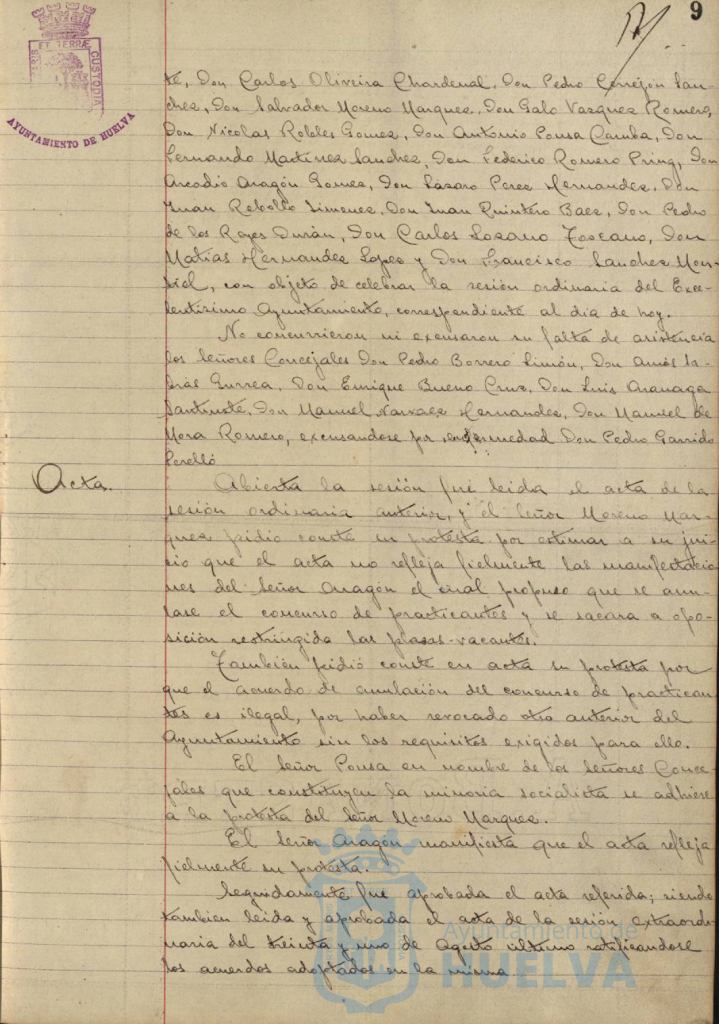 9
PORTUS MARIS ET TERRÆ CUSTODIA
AYUNTAMIENTO DE HUELVA
te, Don Carlos Oliveira Chardenal, Don Pedro Cerrejón San-
chez, Don Salvador Moreno Marquez, Don Galo Vazquez Romero,
Don Nicolas Robles Gomez, Don Antonio Pousa Camba, Don
Fernando Martinez Sanchez, Don Federico Romero Pring, Don
Arcadio Aragón Gomez, Don Lázaro Perez Hernandez, Don
Juan Rebollo Jimenez, Don Juan Quintero Baez, Don Pedro
de los Reyes Durán, Don Carlos Lozano Toscano, Don
Matías Hernandez Lopez y Don Francisco Sanchez Mon-
tiel, con objeto de celebrar la sesión ordinaria del Exce-
lentisimo Ayuntamiento, correspondiente al dia de hoy.
No concurrieron ni excusaron su falta de asistencia
los Señores Concejales Don Pedro Borrero Limón, Don Amós Sa-
brás Gurrea, Don Enrique Bueno Cruz, Don Luis
Don Manuel Narvaez Hernandez, Don Manuel de
Mora Romero, excusandose por enfermedad Don Pedro Garrido
Perelló
Acta.
Abierta la sesión fué leida el acta de la
sesión ordinaria anterior, y el Señor Moreno Mar-
quez pidió conste su protesta por estimar a su jui-
cio que el acta no refleja fielmente las manifestacio-
nes del Señor Aragón el cual propuso que se anu-
lase el concurso de practicantes y se sacara a opo-
sición restringida las plazas vacantes.
También pidió conste en acta su protesta por
que el acuerdo de anulación del concurso de practican-
tes es ilegal, por haber revocado otro anterior del
Ayuntamiento sin los requisitos exigidos para ello.
El Señor Pousa en nombre de los Señores Conce-
jales que constituyen la minoria socialista se adhiere
a la protesta del Señor Moreno Marquez.
El Señor Aragón manifiesta que el acta refleja
fielmente su protesta.
Seguidamente fue aprobada el acta referida; siendo
tambien leida y aprobada el acta de la sesión extraordi-
naria del treinta y uno de Agosto último ratificandose
los acuerdos adoptados en la misma
Ayuntamiento de
HUELVA